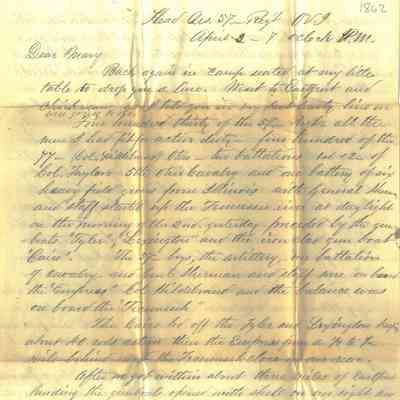 1862
Head Qrs. 57 Regt OVI
April 2 - 7 o'clock P.M.
Dear Mary
Back again in camp seated at my little
table to drop you a line. Went to Eastport and
told you in my last hasty line on
Four hundred thirty of the 57 all the
men I had fit for active duty - five hundred of the
77 - Col. Hildebrand Ohio - two battalions 1st & 2d of
Col. Taylors 5th Ohio Cavalry and one battery of six
heavy field guns from Illinois with General Sherman
and staff started up the Tennessee river at day light
on the morning of the 2nd, yesterday preceded by the gun
boats "Tyler", "Lexington" and the iron clad gun boat
"Cairo". The 57 boys, the artillery, one battalion
of cavalry and Genl Sherman and staff were on board
the "Empress" Col Hildebrand and the balance was
on board the "Tecumseh"
The Cairo led off the Tyler and Lexington kept
about 40 rods astern then the Empress from
behind with the Tecumseh close on our rear.
After we got within about three miles of Eastport
landing the gunboats opened with shell on our right an